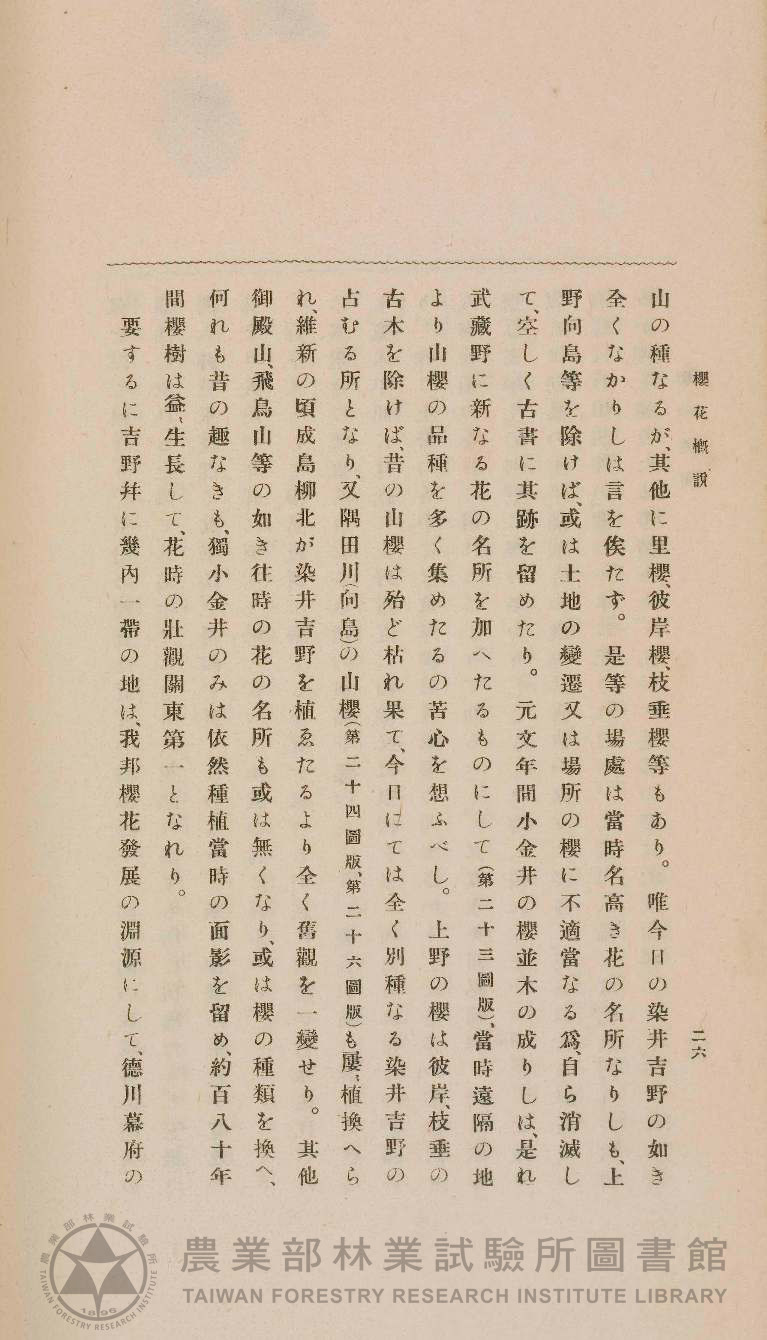 櫻花概說
二六
山の種なるが、其他に里櫻、彼岸櫻、枝垂櫻等もあり。唯今日の染井吉野の如き
全くなかりしは言を俟たず。是等の場處は當時名高き花の名所なりしも、上
野向島等を除けば、或は土地の變遷又は場所の櫻に不適當なる爲、自ら消滅し
て、空しく古書に其跡を留めたり。元文年間小金井の櫻並木の成りしは、是れ
武藏野に新なる花の名所を加へたるものにして(第二十三圖版)、當時遠隔の地
より山櫻の品種を多く集めたるの苦心を想ふべし。上野の櫻は彼岸、枝垂の
古木を除けば、昔の山櫻は殆ど枯れ果て、今日にては全く別種なる染井吉野の
占むる所となり、又隅田川(向島)の山櫻(第二十四圖版、第二十六圖版)も屢〻植換へら
れ、維新の頃成島柳北が染井吉野を植ゑたるより全く舊觀を一變せり。其他
御殿山、飛鳥山等の如き往時の花の名所も或は無くなり、或は櫻の種類を換へ、
何れも昔の趣なきも、獨小金井のみは依然種植當時の面影を留め、約百八十年
間櫻樹は益〻生長して、花時の壯觀關東第一となれり。
要するに吉野幷に畿內一帶の地は、我邦櫻花發展の淵源にして、德川幕府の
農業部林業試驗所圖書館
TAIWAN FORESTRY RESEARCH INSTITUTE LIBRARY
農業部林業試驗所
TAIWAN FORESTRY RESEARCH INSTITUTE
1896